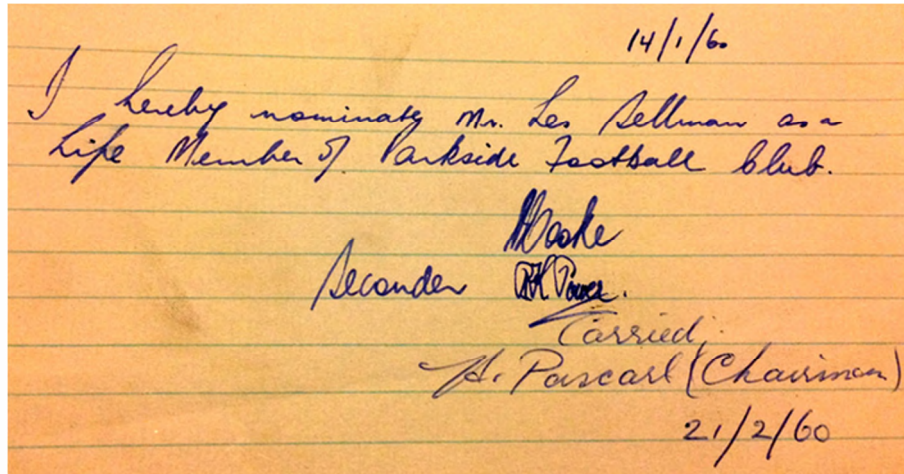 14/1/60
I hereby nominate Mr. Les Sellman as a
Life Member of Parkside Football Club.
Cooke
Seconder Power.
Carried.
H. Pascarl (Chairman)
21/2/60